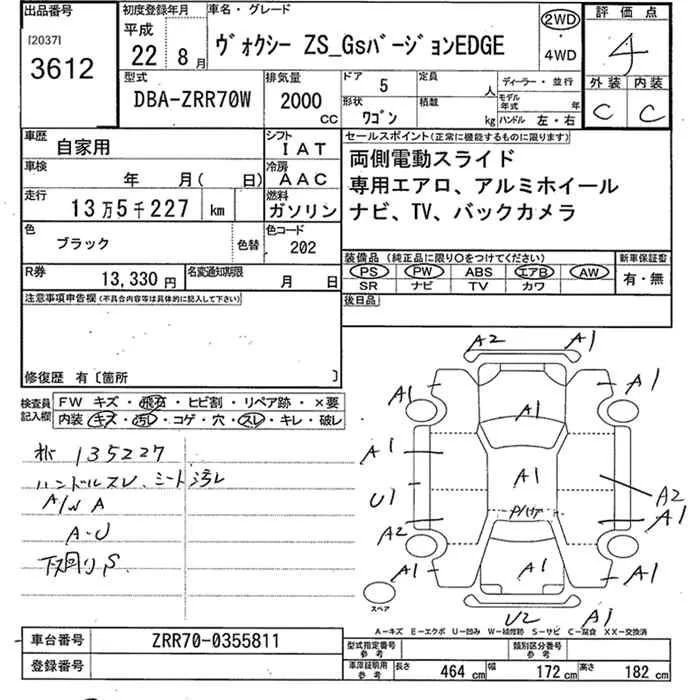 出品番号 初度登録年月 車名・グレード 2WD 評価点
[2037] 平成
3612 22 8月 ヴォクシー ZS_GsバージョンEDGE ・ 4
4WD
外装 内装
C C
型式 排気量 ドア 5 定員 人 ディーラー・並行
DBA-ZRR70W 2000 CC 形状 ワゴン 積載 kg モデル年式 年
ハンドル 左・右
車歴 自家用 シフト IAT セールスポイント(正常に機能するものに限ります)
車検 年 月( 日) 冷房 AAC 両側電動スライド
専用エアロ、アルミホイール
走行 13万5千227 km 燃料 ガソリン ナビ、TV、バックカメラ
色 ブラック 色替 色コード 202
装備品(純正品に限り○をつけてください) 新車保証書
R券 13,330円 名変通知期限 月 日 PS PW ABS エアB AW 有・無
SR ナビ TV カワ
注意事項申告欄(不具合内容等は具体的に記入して下さい) 後日品
修復歴 有〔箇所 〕
検査員記入欄 FW キズ・飛石・ヒビ割・リペア跡・×要
内装 キズ・汚レ・コゲ・穴・スレ・キレ・破レ
135227
ハンドルスレ、シート汚レ
A/W A
A-U
下回りS
A2 A1
A1 A1
A1
A1 A1
U1 A2
A2 A1
A1 A1 A1
U2 A1
スペア
A−キズ E−エクボ U−凹み W−補修跡 S−サビ C−腐食 XX−交換済
車台番号 ZRR70-0355811 型式指定番号 参考 類別区分番号 参考
登録番号 車庫証明用 参考 長さ 464 cm 幅 172 cm 高さ 182 cm